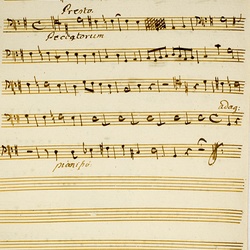 Presto.
Peccatorum
Adag:
pianissi: